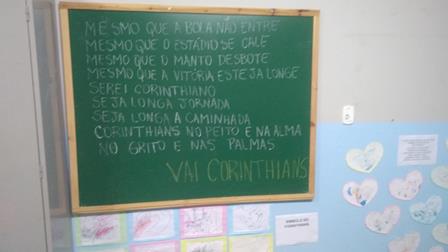 MESMO QUE A BOLA NÃO ENTRE
MESMO QUE O ESTÁDIO SE CALE
MESMO QUE O MANTO DESBOTE
MESMO QUE A VITÓRIA ESTEJA LONGE
SEREI CORINTHIANO
SEJA LONGA JORNADA
SEJA LONGA A CAMINHADA
CORINTHIANS NO PEITO E NA ALMA
NO GRITO E NAS PALMAS
VAI CORINTHIANS